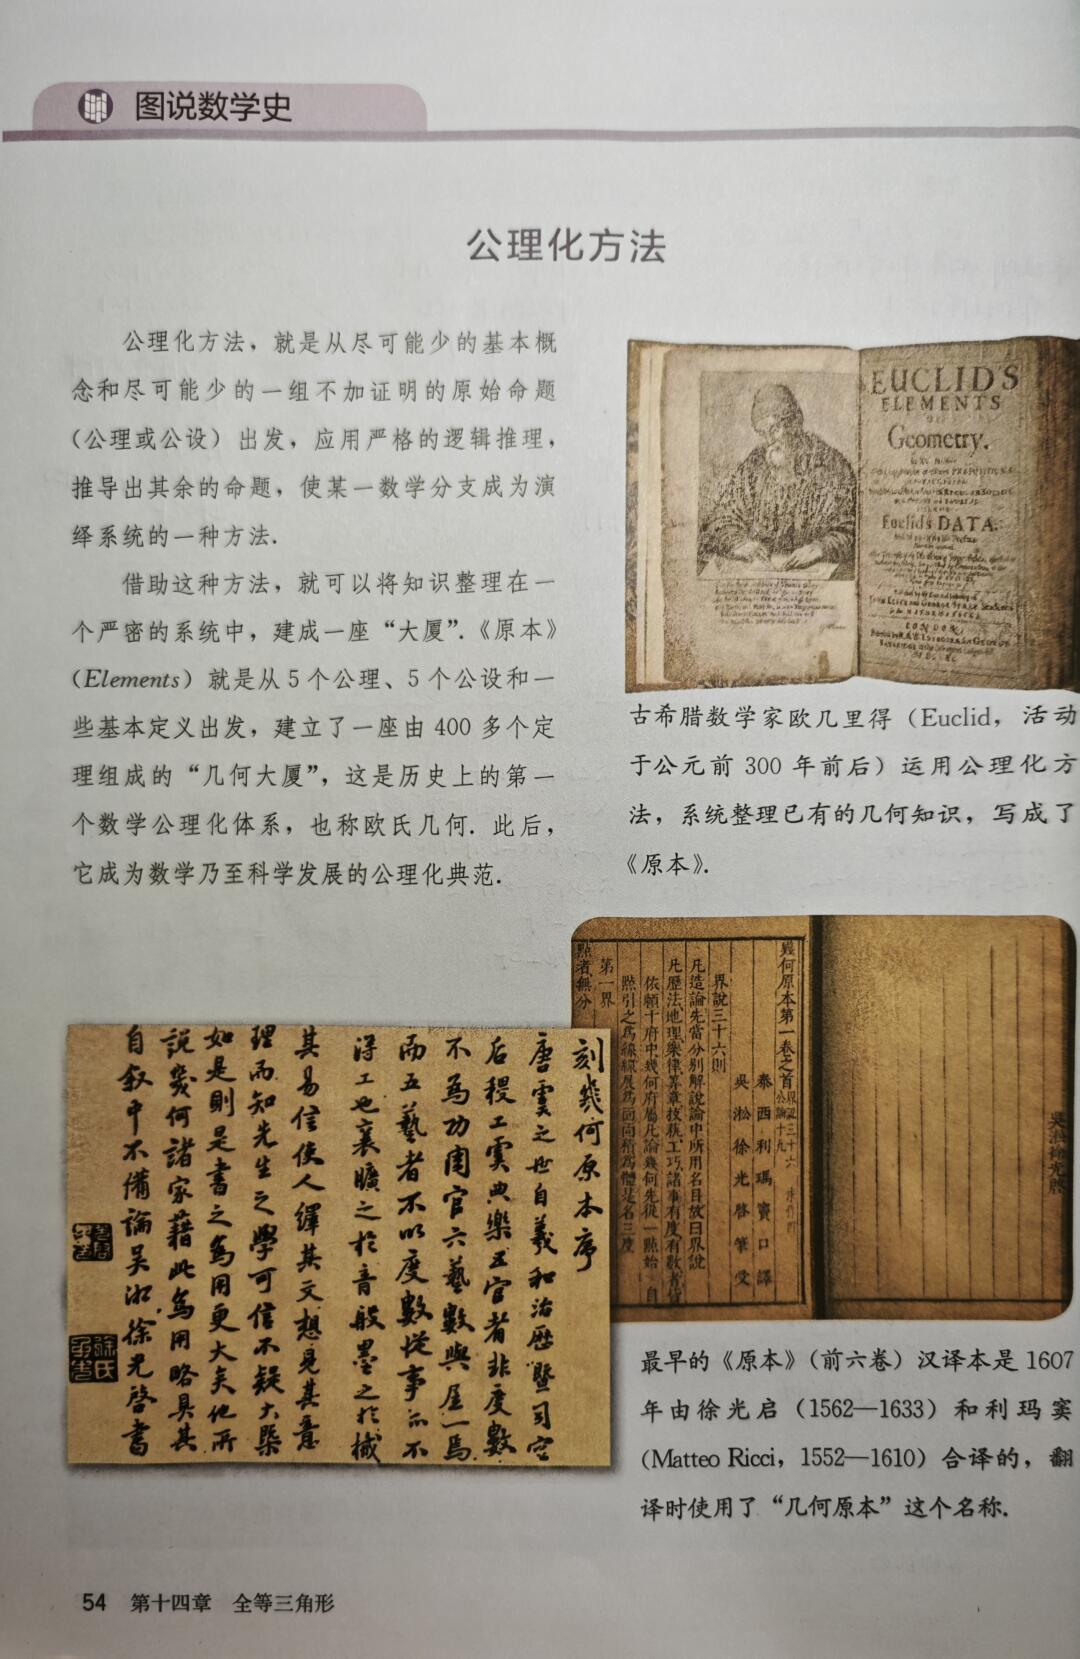 图说数学史
公理化方法
公理化方法，就是从尽可能少的基本概
念和尽可能少的一组不加证明的原始命题
（公理或公设）出发，应用严格的逻辑推理，
推导出其余的命题，使某一数学分支成为演
绎系统的一种方法.
借助这种方法，就可以将知识整理在一
个严密的系统中，建成一座“大厦”.《原本》
（Elements）就是从 5 个公理、5 个公设和一
些基本定义出发，建立了一座由 400 多个定
理组成的“几何大厦”，这是历史上的第一
个数学公理化体系，也称欧氏几何. 此后，
它成为数学乃至科学发展的公理化典范.
EUCLID'S
ELEMENTS
Geometry.
Euclid's DATA.
LONDON,
古希腊数学家欧几里得（Euclid，活动
于公元前 300 年前后）运用公理化方
法，系统整理已有的几何知识，写成了
《原本》.
幾何原本第一卷之首
泰西利瑪竇口譯
吳淞徐光啓筆受
界說三十六則
凡造論先當分別解說論中所用名目故曰界說
凡歷法地理樂律算章技藝工巧諸事有度有數者
依賴十府中幾何府屬凡論幾何先從一點始自
點引之為線線展為面面積為體是名三度
第一界
點者無分
刻幾何原本序
唐虞之世自羲和治歷暨司空
后稷工虞典樂五官者非度數
不為功周官六藝數與居一焉
而五藝者不以度數從事亦不
得工也襄曠之於音般墨之於械
其易信使人繹其文想見其意
理而知先生之學可信不疑大槩
如是則是書之為用更大矣他所
說幾何諸家藉此為用略具其
自叙中不備論吳淞徐光啓書
最早的《原本》（前六卷）汉译本是 1607
年由徐光启（1562—1633）和利玛窦
（Matteo Ricci，1552—1610）合译的，翻
译时使用了“几何原本”这个名称.
54 第十四章 全等三角形